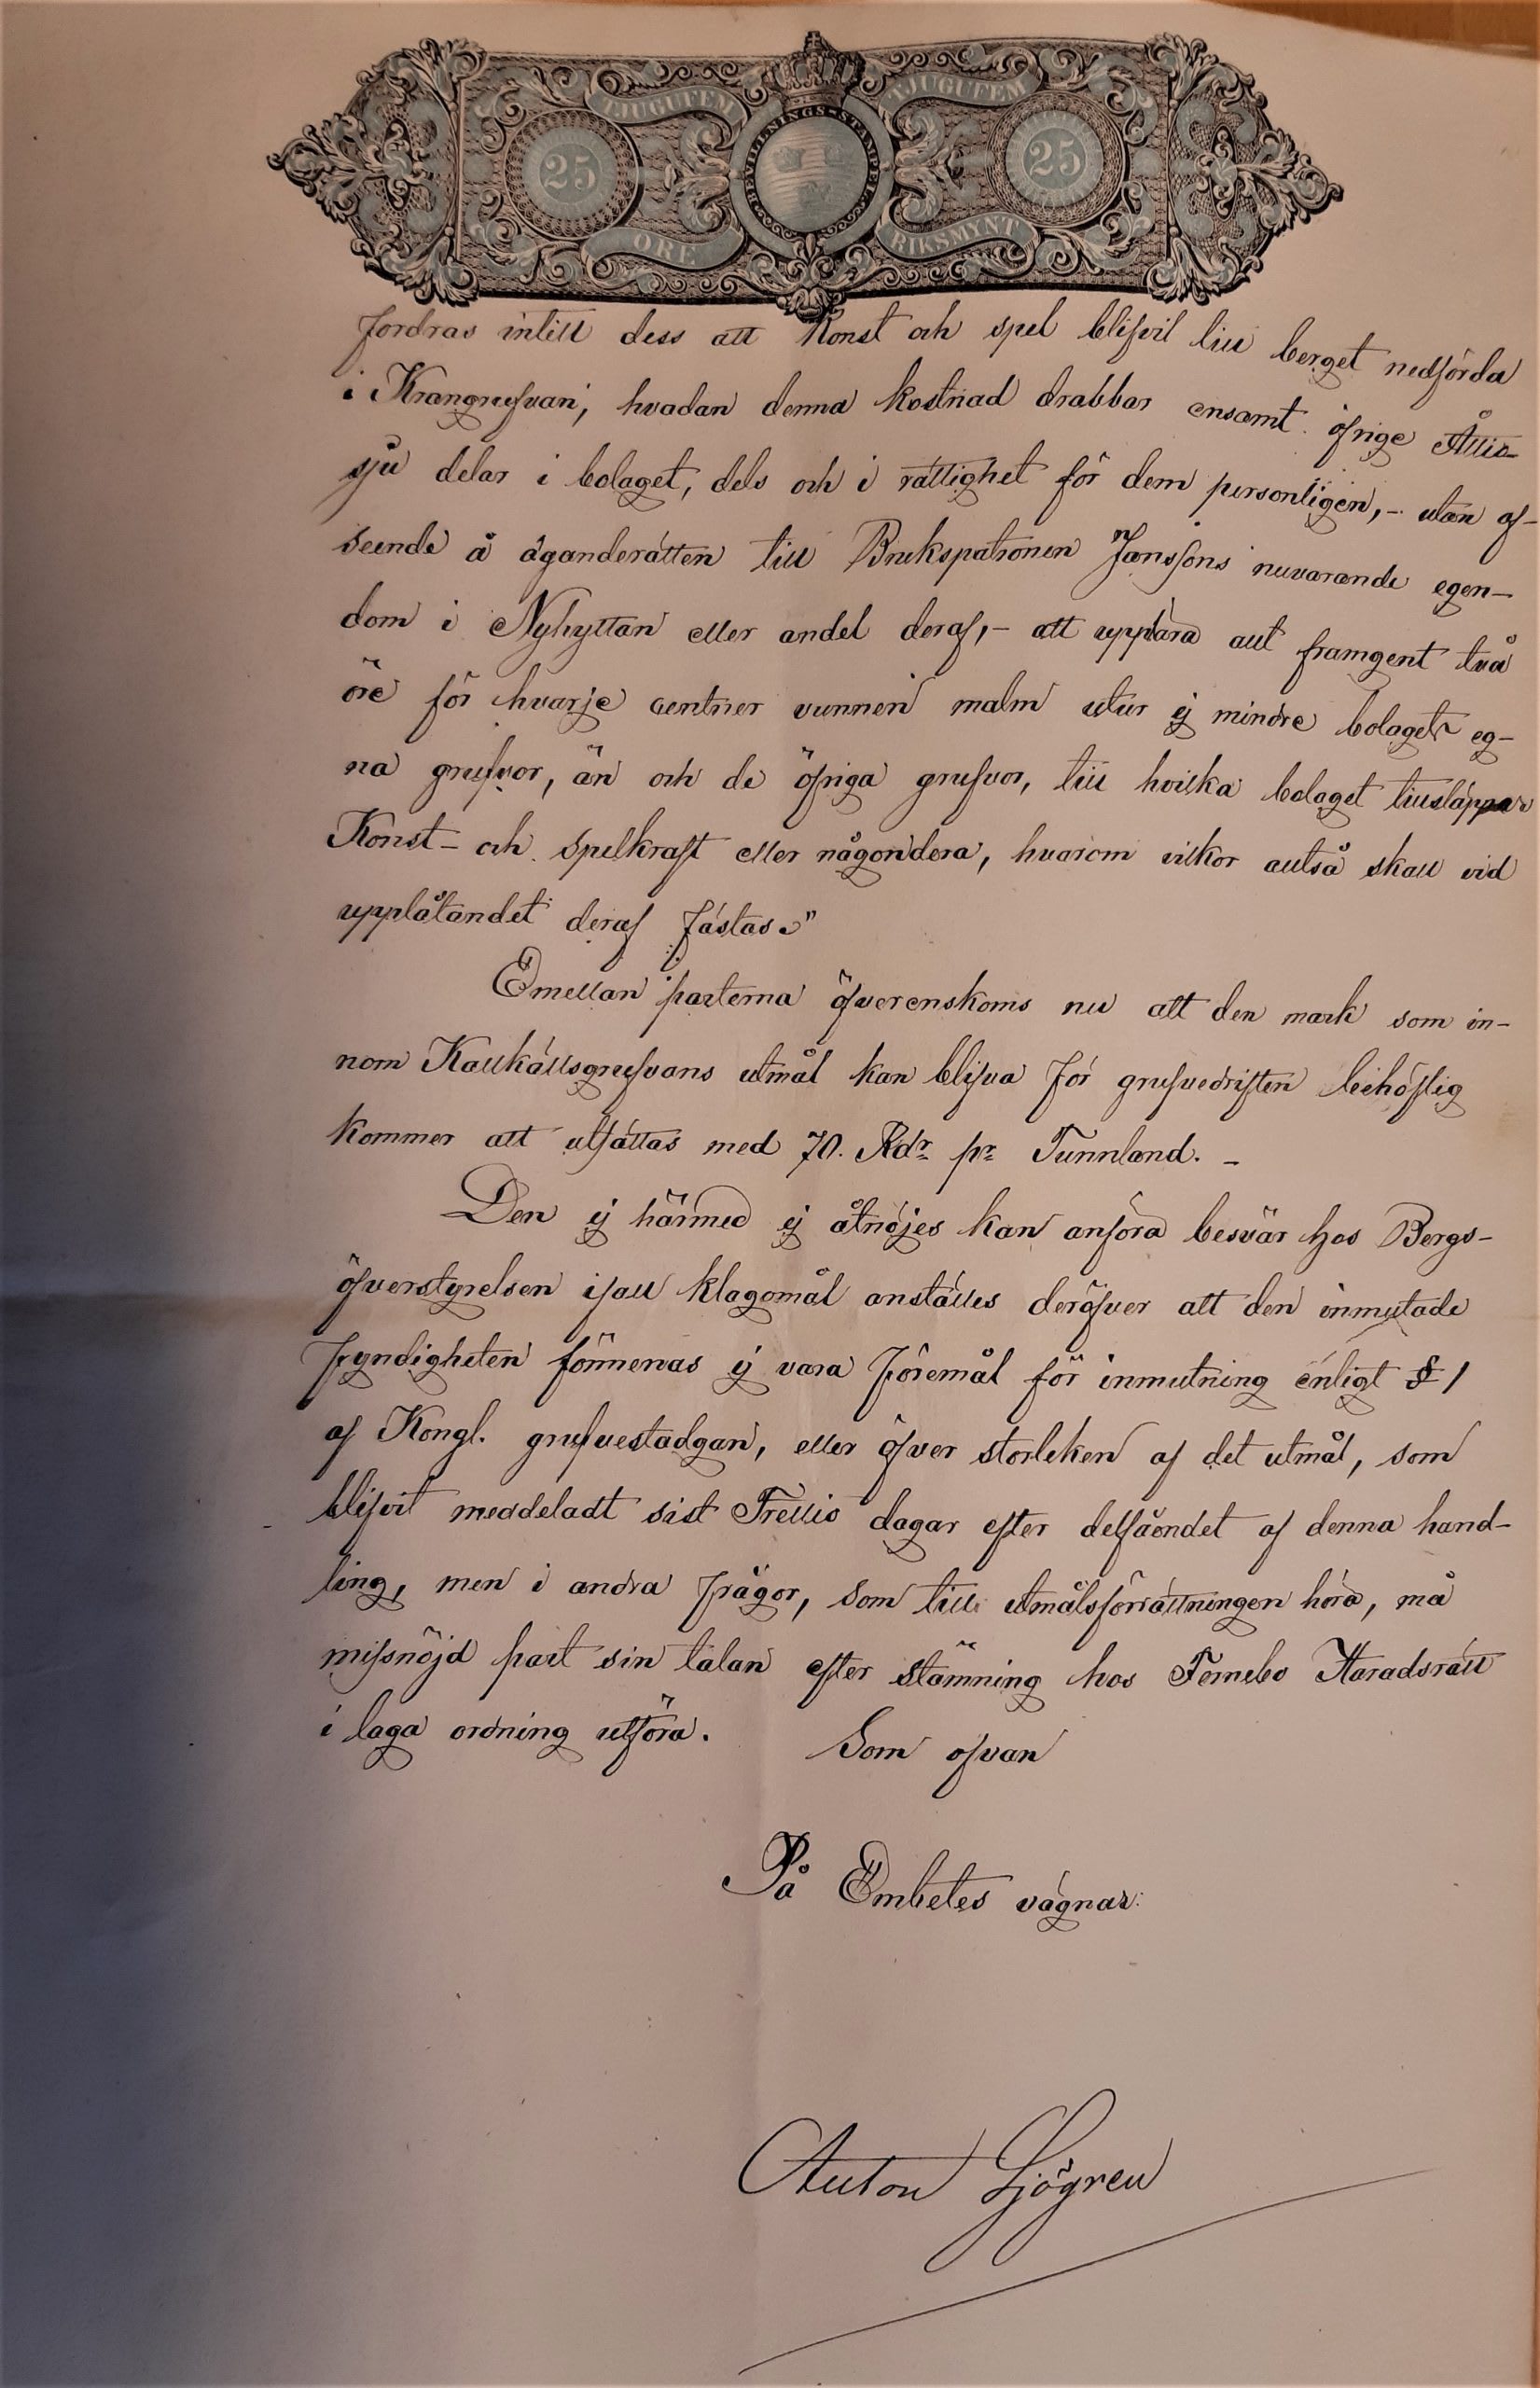 TJUGUFEM TJUGUFEM
25 BEVILLNINGS-STÄMPEL 25
ÖRE RIKSMYNT
fordras intill dess att Konst och spel blifvit till berget nedförda
i Krangrufvan, hvadan denna kostnad drabbar ensamt öfrige Åttio-
sju delar i bolaget, dels och i rättighet för dem personligen, – utan af-
seende å äganderätten till Brukspatronen Janssons nuvarande egen-
dom i Nyhyttan eller andel deraf, – att uppbära allt framgent två
öre för hvarje centner vunnen malm utur ej mindre bolagets eg-
na grufvor, än och de öfriga grufvor, till hvilka bolaget tillsläpper
Konst- och spelkraft eller någondera, hvarom vilkor alltså skall vid
upplåtandet deraf fästas."
Emellan parterna öfverenskoms nu att den mark som in-
nom Kallkällsgrufvans utmål kan blifva för grufvedriften behöflig
kommer att utfättas med 70. Rdr pr Tunnland. –
Den ej härmed ej åtnöjes kan anföra besvär hos Bergs-
öfverstyrelsen ifall klagomål anställes deröfver att den inmutade
fyndigheten förmenas ej vara föremål för inmutning enligt § 1
af Kongl. grufvestadgan, eller öfver storleken af det utmål, som
blifvit meddeladt sist Trettio dagar efter delfåendet af denna hand-
ling, men i andra frågor, som till utmålsförrättningen höra, må
missnöjd part sin talan efter stämning hos Fernebo Häradsrätt
i laga ordning utföra. Som ofvan
På Embetes vägnar:
Anton Sjögren